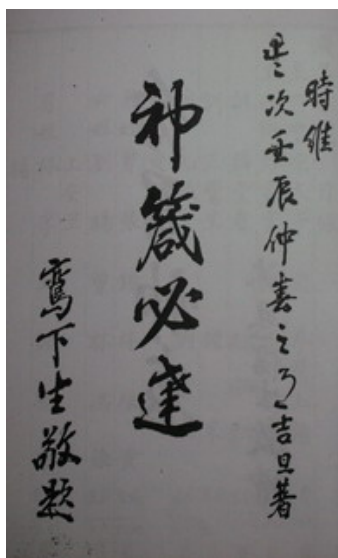 時維
歲次壬辰仲春之月吉旦著
神箴必達
鸞下生敬題